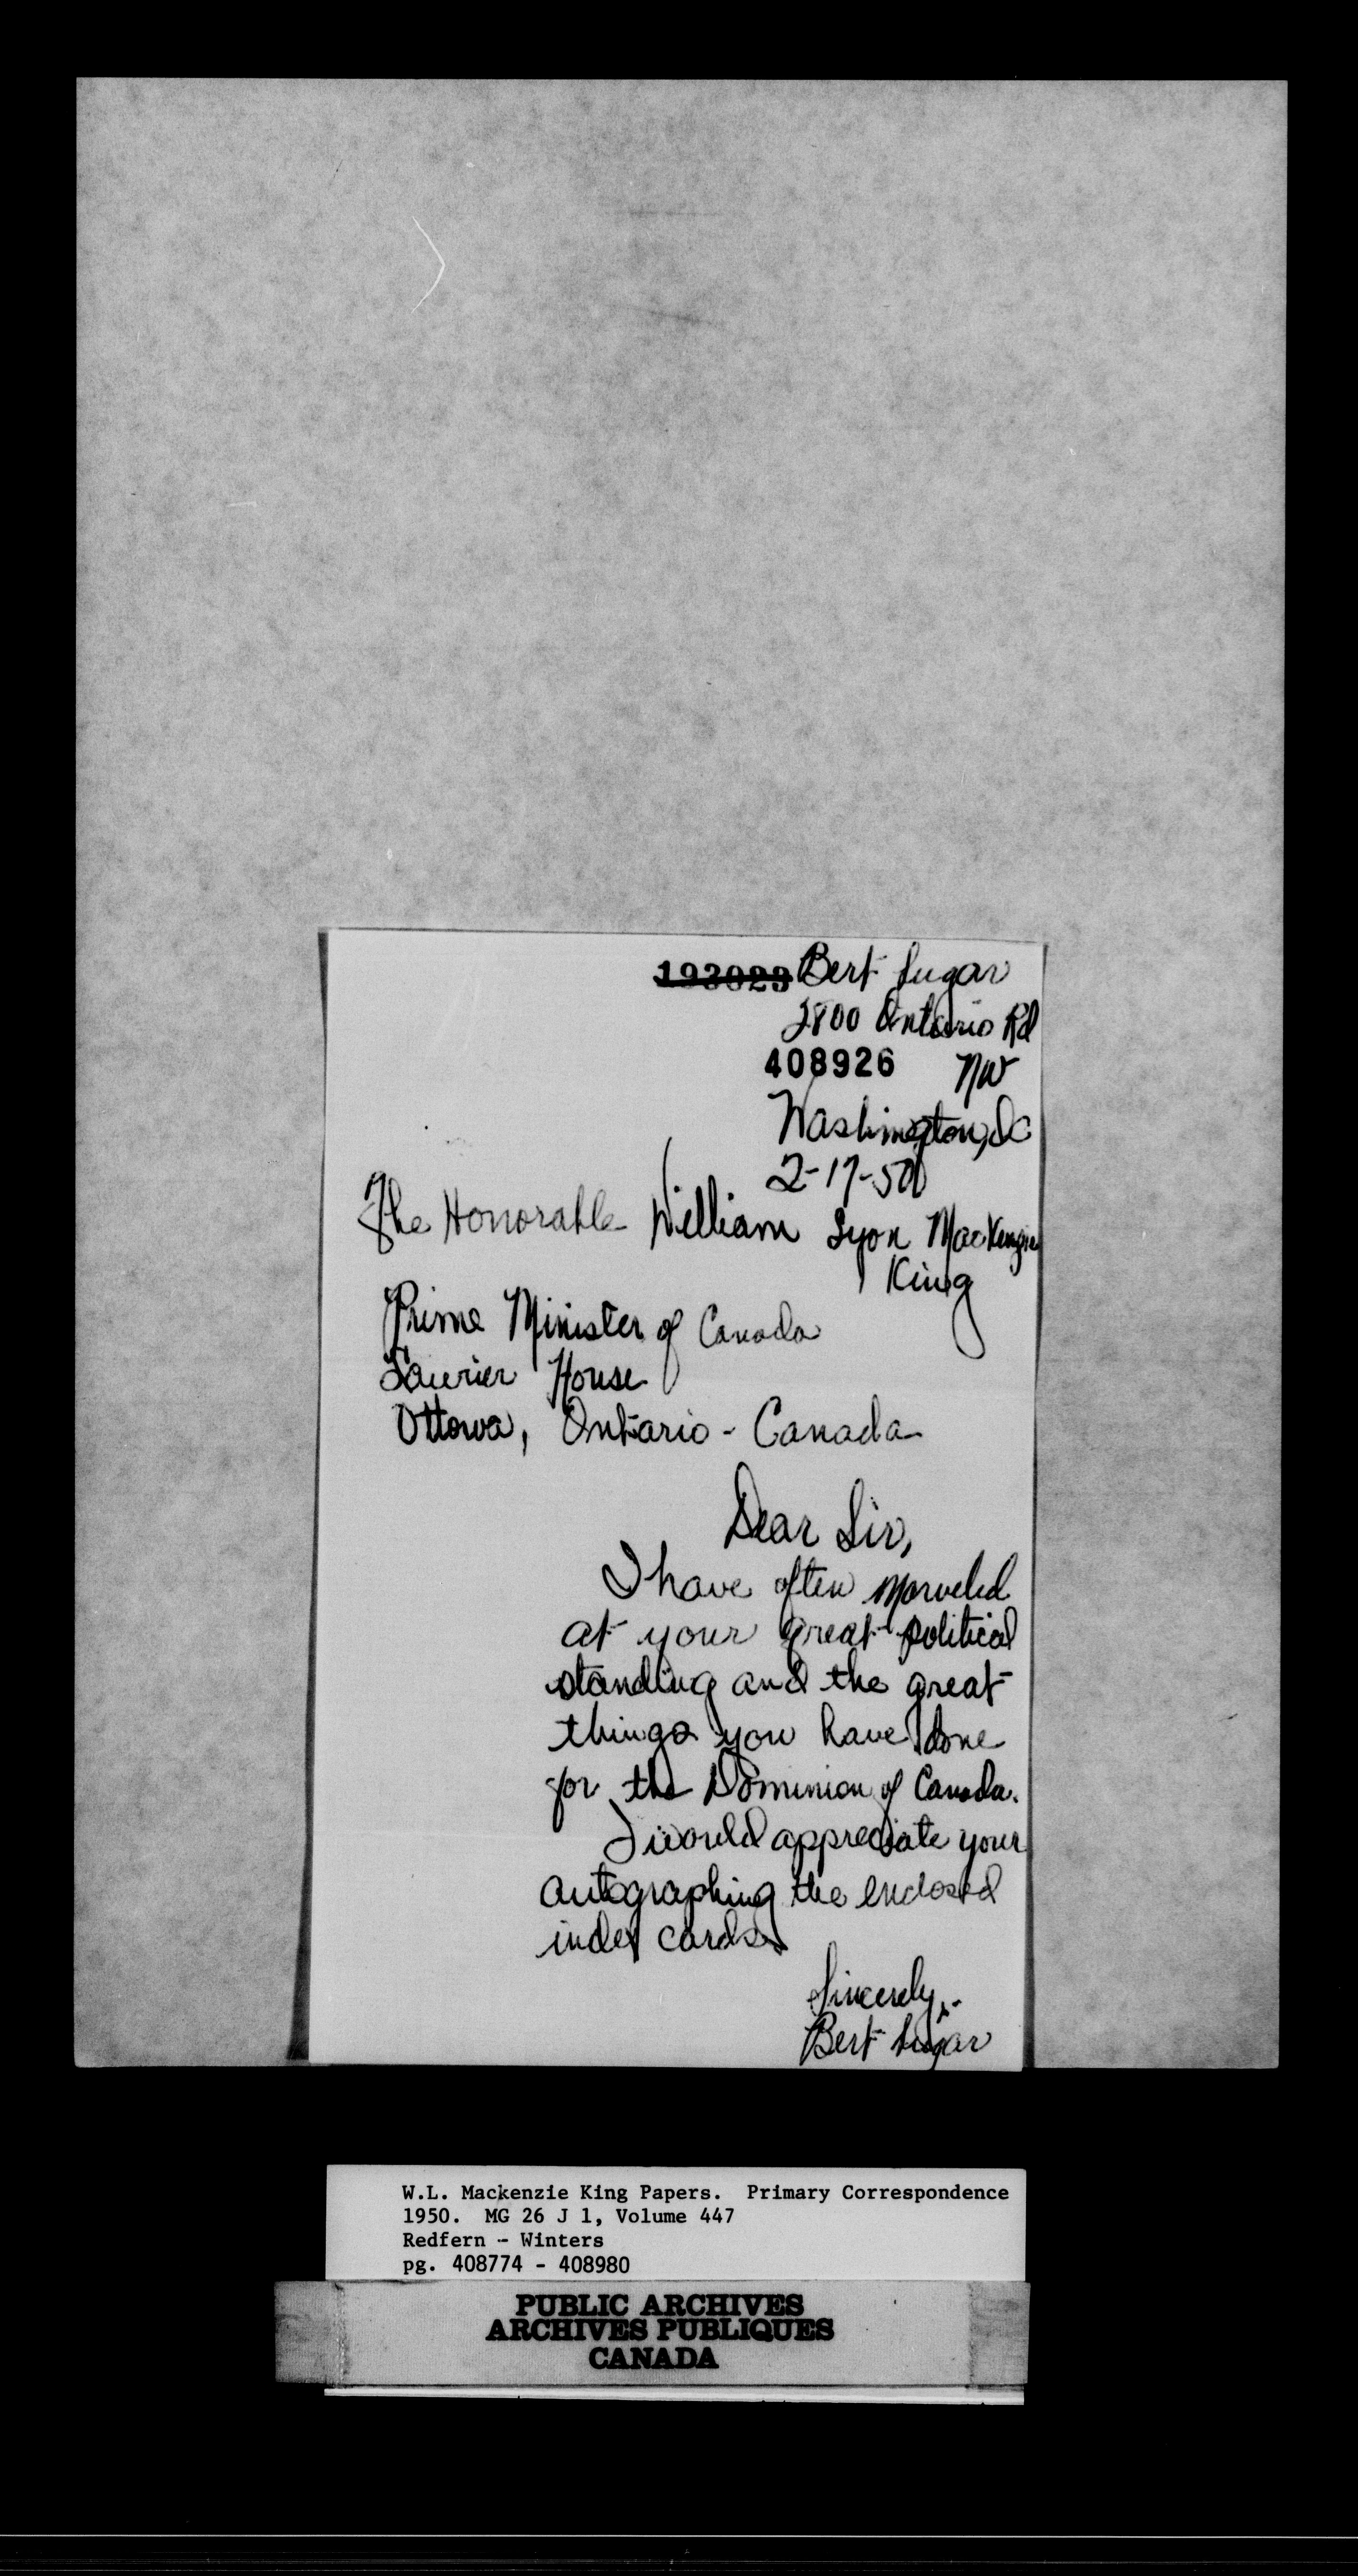 193023 Bert Sugar
2800 Ontario Rd
408926 NW
Washington, DC
2-17-50
The Honorable William Lyon MacKenzie
King
Prime Minister of Canada
Laurier House
Ottowa, Ontario - Canada
Dear Sir,
I have often marveled
at your great political
standing and the great
things you have done
for the Dominion of Canada.
I would appreciate your
autographing the enclosed
index cards.
Sincerely,
Bert Sugar
W.L. Mackenzie King Papers. Primary Correspondence
1950. MG 26 J 1, Volume 447
Redfern - Winters
pg. 408774 - 408980
PUBLIC ARCHIVES
ARCHIVES PUBLIQUES
CANADA